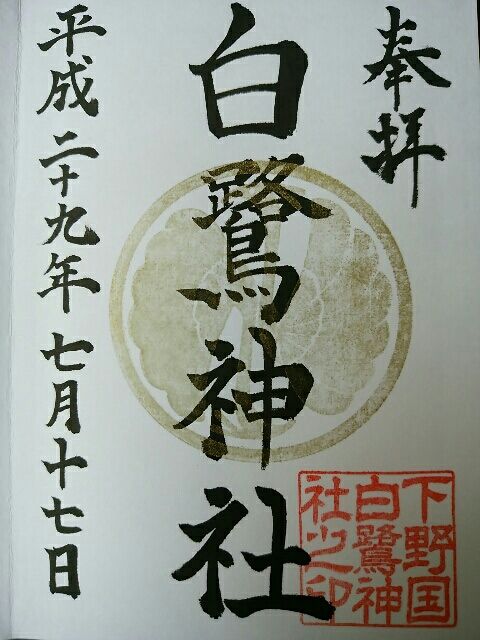 奉拝
白鷺神社
下野国
白鷺神
社之印
平成二十九年七月十七日